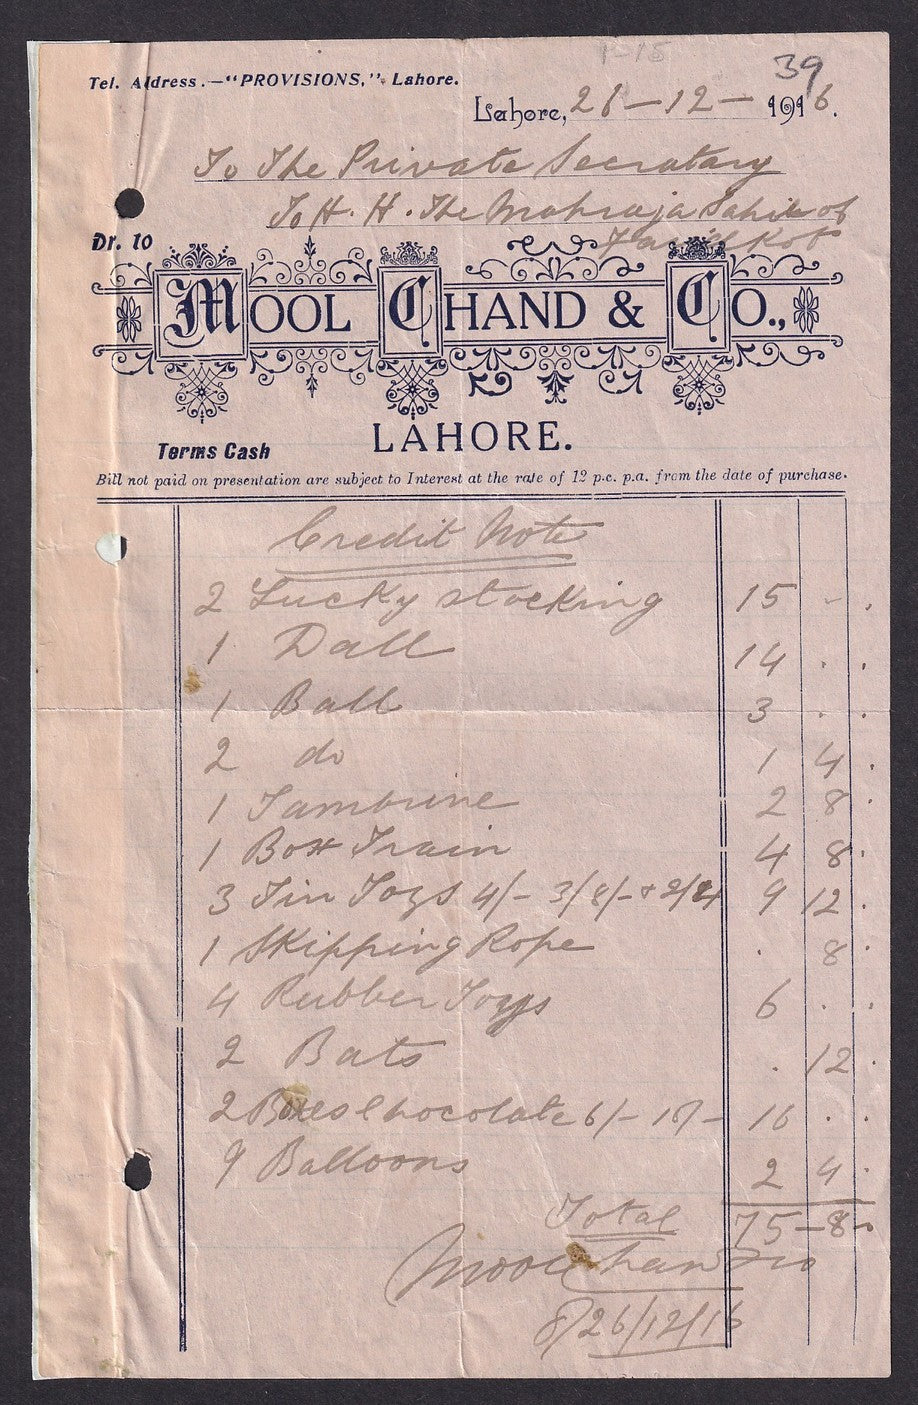 1-15
39
Tel. Address.—"PROVISIONS," Lahore.
Lahore, 26-12-1916.
To The Private Secratary
To H. H. The Mahraja Sahib of
Faridkot
Dr. to
MOOL CHAND & CO.,
LAHORE.
Terms Cash
Bill not paid on presentation are subject to Interest at the rate of 12 p.c. p.a. from the date of purchase.
Credit Note
2 Lucky stocking 15 - .
1 Dall 14 . .
1 Ball 3 . .
2 do 1 4 .
1 Tambrine 2 8 .
1 Box Train 4 8 .
3 Tin Toys 4/- 3/8/- & 2/4 9 12 .
1 Skipping Rope . 8 .
4 Rubber Toys 6 . .
2 Bats . 12 .
2 Boxes Chocolate 6/- 10/- 16 . .
9 Balloons 2 4 .
Total 75-8-
Moolchand & Co
26/12/16